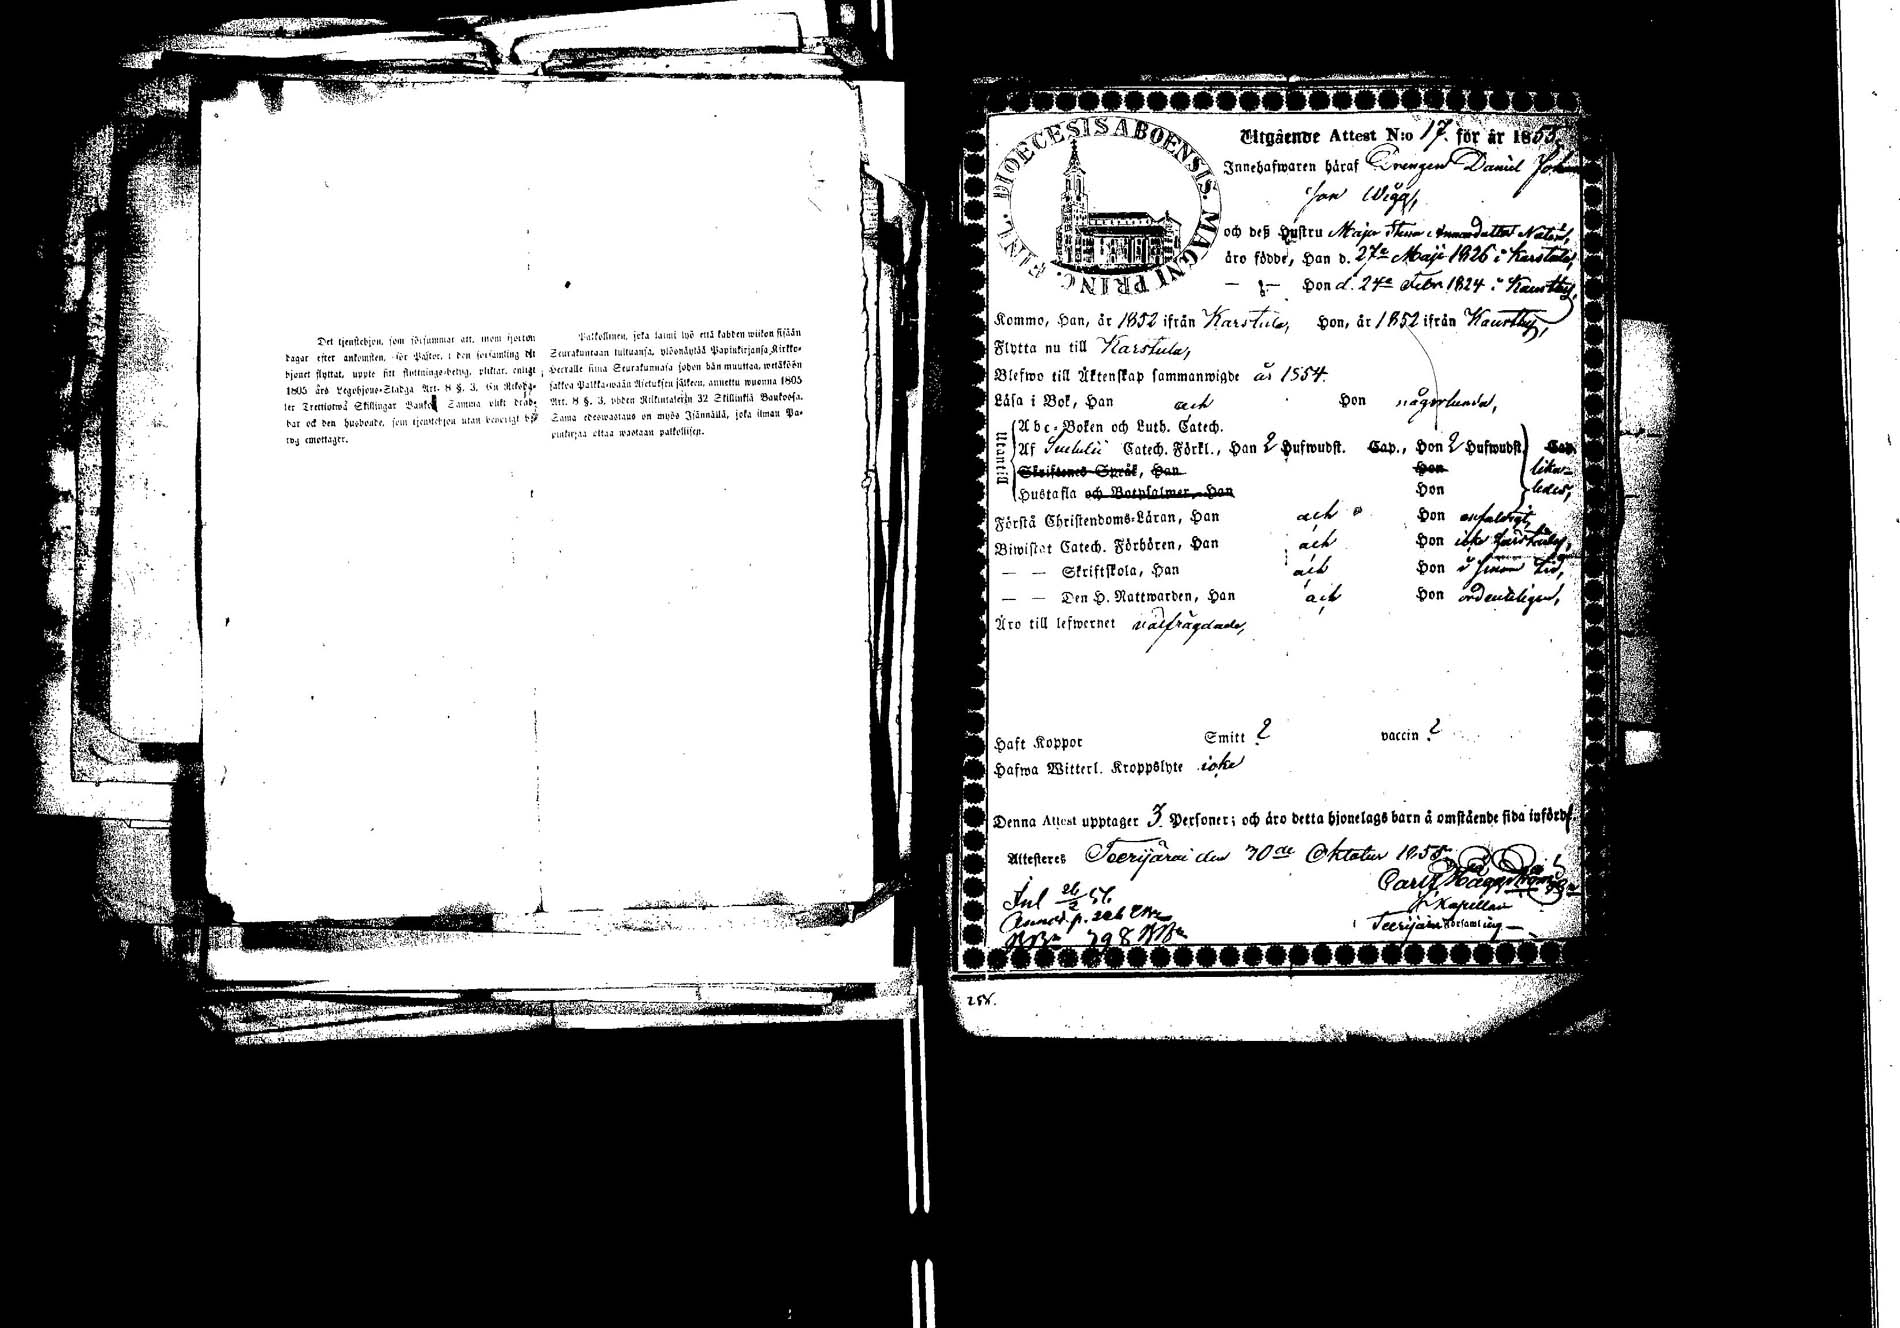 Det tjenstehjon, som försummar att, inom fjorton
dagar efter ankomsten, för Pastor, i den församling dit
hjonet flyttat, uppte sitt flyttnings-betyg, pliktar, enligt
1805 års Legohjons-Stadga Art. 8 §. 3. En Riksda-
ler Trettiotwå Skillingar Banko. Samma plikt drab-
bar ock den husbonde, som tjenstehjon utan behörigt be-
tyg emottager.
Palkollinen, joka laimi lyö että kahden wiikon sisään
Seurakuntaan tultuansa, ylösnäyttää Papinkirjansa Kirkko-
herralle siinä Seurakunnasa johon hän muuttaa, wetäköön
sakkoa Palkka-wään Asetuksen jälkeen, annettu wuonna 1805
Art. 8 §. 3, yhden Riikintalerin 32 Skillinkiä Bankossa.
Sama edeswastaus on myös Isännällä, joka ilman Pa-
pinkirjaa ottaa wastaan palkollisen.
DIOECESIS ABOENSIS. MAGNI PRINC. FINL.
Utgående Attest N:o 17. för år 1855,
Innehafwaren häraf Drengen Daniel Johan
son Wigg,
och deß Hustru Maja Stina Annasdotter
äro födde, Han d. 27de Maji 1826 i Karstula,
— „ — Hon d. 24de Febr. 1824 i Kaustby,
Kommo, Han, år 1852 ifrån Karstula, Hon, år 1852 ifrån Kaustby,
Flytta nu till Karstula,
Blefwo till Äktenskap sammanwigde år 1854.
Läsa i Bok, Han och Hon någorlunda,
Utantill
Abc-Boken och Luth. Catech.
Af Catech. Förkl., Han 2 Hufwudst. Cap., Hon 2 Hufwudst. Cap.
Skriftenes Språk, Han Hon lika-
Hustafla och Botpsalmer, Han Hon ledes,
Förstå Christendoms-Läran, Han och Hon enfaldigt,
Biwistat Catech. Förhören, Han och Hon icke
— — Skriftskola, Han och Hon i sinom tid,
— — Den H. Nattwarden, Han och Hon ordenteligen,
Äro till lefwernet välfrägdade,
Haft Koppor Smitt ? vaccin ?
Hafwa Witterl. Kroppslyte icke
Denna Attest upptager 3 Personer; och äro detta hjonelags barn å omstående sida införde.
Attesteres Teerijärvi den 30de Oktober 1855.
Carl Häggström
Kapellan
i Teerijärvi Församling
298
258.